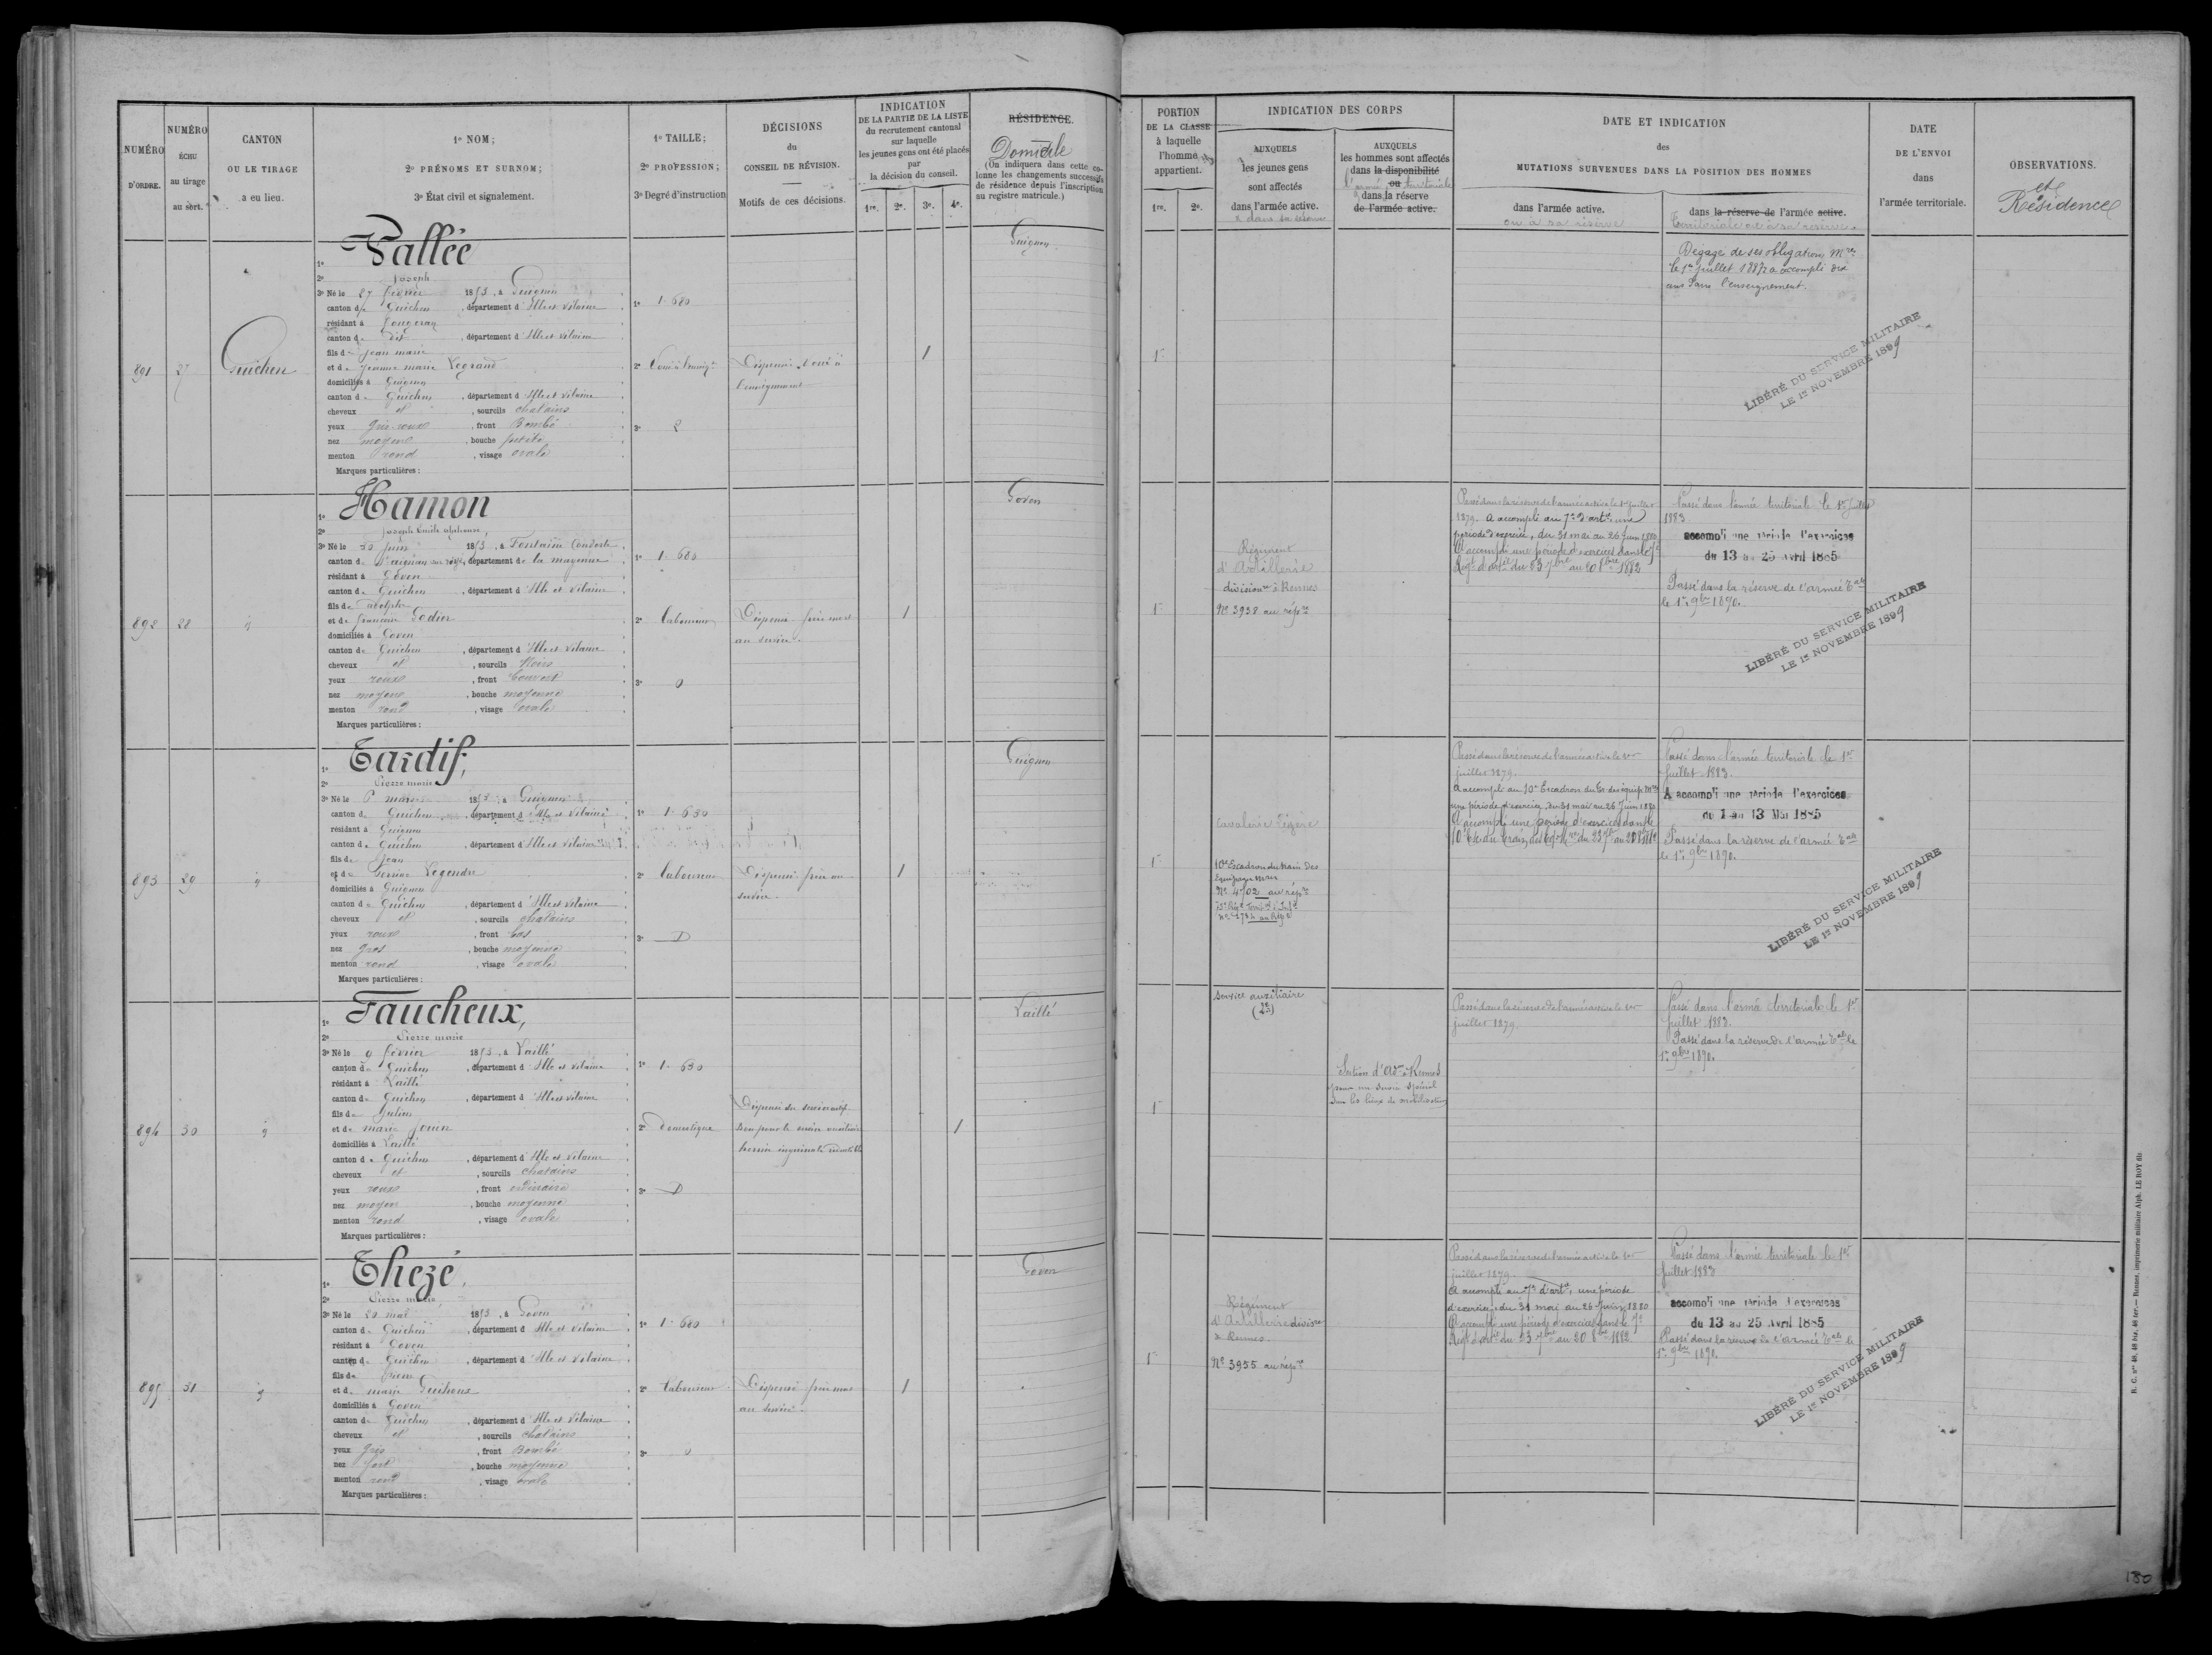 NUMÉRO
D'ORDRE.
NUMÉRO
ÉCHU
au tirage
au sort.
CANTON
OU LE TIRAGE
a eu lieu.
1º NOM;
2º PRÉNOMS ET SURNOM;
3º État civil et signalement.
1º TAILLE;
2º PROFESSION;
3º Degré d'instruction
DÉCISIONS
du
CONSEIL DE RÉVISION.
Motifs de ces décisions.
INDICATION
DE LA PARTIE DE LA LISTE
du recrutement cantonal
sur laquelle
les jeunes gens ont été placés
par
la décision du conseil.
1re. 2e. 3e. 4e.
RÉSIDENCE.
Domicile
(On indiquera dans cette co-
lonne les changements successifs
de résidence depuis l'inscription
au registre matricule.)
PORTION
DE LA CLASSE
à laquelle
l'homme
appartient.
1re. 2e.
INDICATION DES CORPS
AUXQUELS
les jeunes gens
sont affectés
dans l'armée active.
AUXQUELS
les hommes sont affectés
dans la disponibilité
ou
l'armée territoriale
dans la réserve
de l'armée active.
DATE ET INDICATION
des
MUTATIONS SURVENUES DANS LA POSITION DES HOMMES
dans l'armée active.
ou à sa réserve
dans la réserve de l'armée active.
Territoriale ou à sa réserve
DATE
DE L'ENVOI
dans
l'armée territoriale.
OBSERVATIONS.
et
Résidence
891 27 Guichen
1º Vallée
2º Joseph
3º Né le 27 février 1853, à Guignen
canton de Guichen, département d'Ille et Vilaine
résidant à
canton d, département d'Ille et Vilaine
fils de Jean marie
et de Jeanne marie Legrand
domiciliés à Guignen
canton de Guichen, département d'Ille et Vilaine
cheveux et, sourcils chatains
yeux gris roux, front Bombé
nez moyen, bouche petite
menton rond, visage ovale
Marques particulières:
1º 1.680
3º 2
Dispensé. Voué à
l'enseignement
1
Guignen
1re
Dégagé de ses obligations Mres
le 1er Juillet 1887, a accompli dix
ans dans l'enseignement.
LIBÉRÉ DU SERVICE MILITAIRE
LE 1er NOVEMBRE 1899
892 28
1º Hamon
2º Joseph Emile Alphonse,
3º Né le 30 juin 1853, à Fontaine Couverte
canton de St aignan sur roë, département de la mayenne
résidant à Goven
canton de Guichen, département d'Ille et Vilaine
fils de adolphe
et de françoise Godier
domiciliés à Goven
canton de Guichen, département d'Ille et Vilaine
cheveux et, sourcils Noirs
yeux roux, front Couvert
nez moyen, bouche moyenne
menton rond, visage ovale
Marques particulières:
1º 1.680
2º laboureur
3º 0
Dispensé frère mort
au service.
1
Goven
1re
Régiment
d'Artillerie
divisionre à Rennes
Nº 3938 au répre
Passé dans la réserve de l'armée active le 1er juillet
1879. A accompli au 7e d'artie une
période d'exercice, du 31 mai au 26 juin 1880
A accompli une période d'exercices dans le 7e
Régt d'artie du 23 7bre au 20 8bre 1882
Passé dans l'armée territoriale le 1er Juillet
1883
accompli une période d'exercices
du 13 au 25 avril 1885
Passé dans la réserve de l'armée Tale
le 1er 9bre 1890.
LIBÉRÉ DU SERVICE MILITAIRE
LE 1er NOVEMBRE 1899
893 29
1º Tardif,
2º Pierre marie
3º Né le 6 mars 1853, à Guignen
canton de Guichen, département d'Ille et Vilaine
résidant à Guignen
canton de Guichen, département d'Ille et Vilaine
fils de Jean
et de Perrine Legendre
domiciliés à Guignen
canton de Guichen, département d'Ille et Vilaine
cheveux et, sourcils chatains
yeux roux, front bas
nez gros, bouche moyenne
menton rond, visage ovale
Marques particulières:
1º 1.630
2º laboureur
3º D
Dispensé frère au
service.
1
Guignen
1re
Cavalerie légère
10e Escadron du train des
équipages mres
Nº 4702 au répre
Passé dans la réserve de l'armée active le 1er
juillet 1879.
A accompli au 10e Escadron du tr. des équip. mres
une période d'exercice, du 31 mai au 26 Juin 1880
A accompli une période d'exercices dans le
10e Esc. du train des Eq. Mres du 23 7bre au 20 8bre 1882
Passé dans l'armée territoriale le 1er
Juillet 1883.
A accompli une période d'exercices
du 1 au 13 Mai 1885
Passé dans la réserve de l'armée Tale
le 1er 9bre 1890.
LIBÉRÉ DU SERVICE MILITAIRE
LE 1er NOVEMBRE 1899
894 30
1º Faucheux,
2º Pierre marie
3º Né le 9 février 1853, à Laillé
canton de Guichen, département d'Ille et Vilaine
résidant à Laillé
canton de Guichen, département d'Ille et Vilaine
fils de Julien
et de marie Jouin
domiciliés à Laillé
canton de Guichen, département d'Ille et Vilaine
cheveux et, sourcils chatains
yeux roux, front ordinaire
nez moyen, bouche moyenne
menton rond, visage ovale
Marques particulières:
1º 1.630
2º domestique
3º D
Dispensé du service actif.
bon pour le service auxiliaire
hernie inguinale réductible
1
Laillé
1re
Service auxiliaire
Section d'Adon à Rennes
pour un service spécial
dans les lieux de mobilisation
Passé dans la réserve de l'armée active le 1er
juillet 1879.
Passé dans l'armée territoriale le 1er
Juillet 1883.
Passé dans la réserve de l'armée Tale le
1er 9bre 1890.
895 31
1º Thezé.
2º Pierre marie
3º Né le 20 mai 1853, à Goven
canton de Guichen, département d'Ille et Vilaine
résidant à Goven
canton de Guichen, département d'Ille et Vilaine
fils de Pierre
et de marie Guiheux
domiciliés à Goven
canton de Guichen, département d'Ille et Vilaine
cheveux et, sourcils chatains
yeux gris, front Bombé
nez fort, bouche moyenne
menton rond, visage ovale
Marques particulières:
1º 1.680
2º laboureur
3º 0
Dispensé frère mort
au service.
1
Goven
1re
Régiment
d'Artillerie divisionre
à Rennes
Nº 3955 au répre
Passé dans la réserve de l'armée active le 1er
juillet 1879.
A accompli au 7e d'artie, une période
d'exercice, du 31 mai au 26 Juin 1880
A accompli une période d'exercices dans le 7e
Régt d'artie du 23 7bre au 20 8bre 1882
Passé dans l'armée territoriale le 1er
Juillet 1883
accompli une période d'exercices
du 13 au 25 Avril 1885
Passé dans la réserve de l'armée Tale le
1er 9bre 1890.
LIBÉRÉ DU SERVICE MILITAIRE
LE 1er NOVEMBRE 1899
R. C. nos 40, 40 bis, 40 ter.— Rennes, imprimerie militaire Alph. LE ROY fils
180